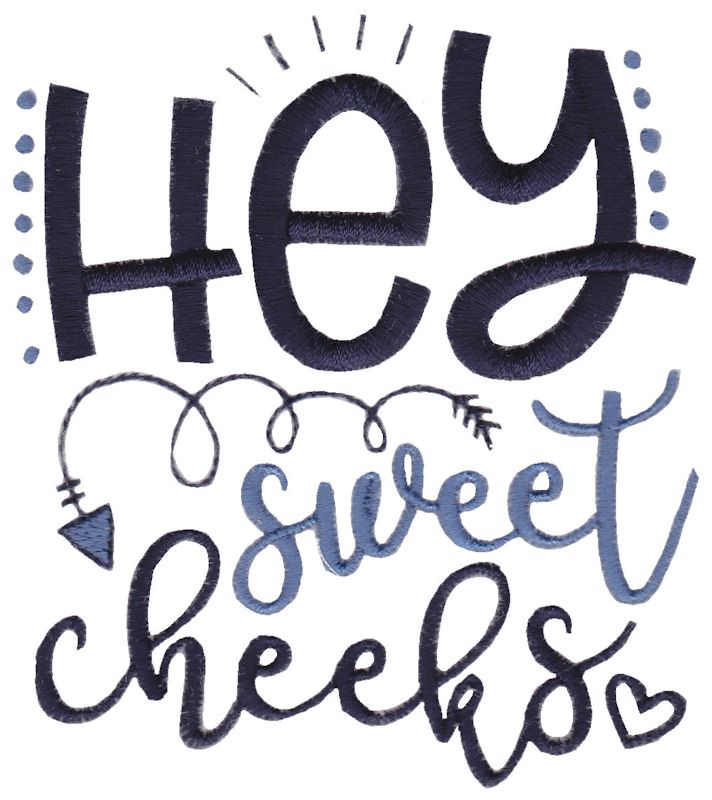 Hey
sweet
cheeks